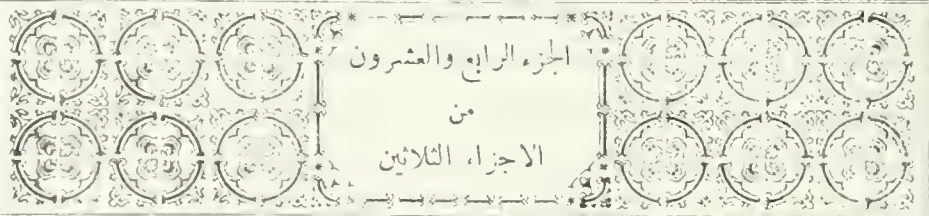 الجزء الرابع والعشرون
من
الاجزاء الثلاثين